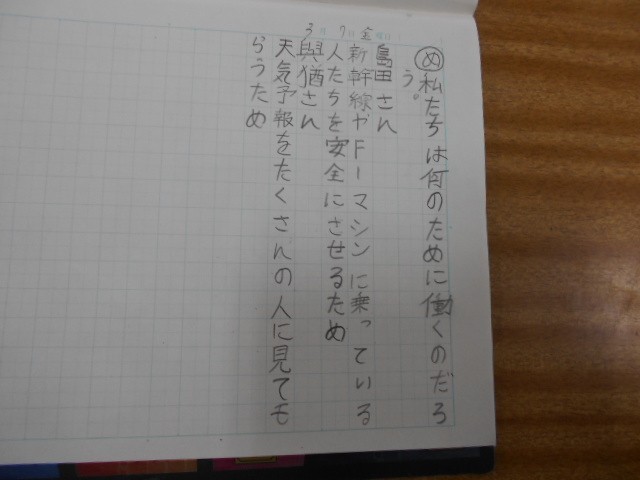 3月7日金曜日
め私たちは何のために働くのだろ
う。
島田さん
新幹線やFーマシンに乗っている
人たちを安全にさせるため
與猶さん
天気予報をたくさんの人に見ても
らうため